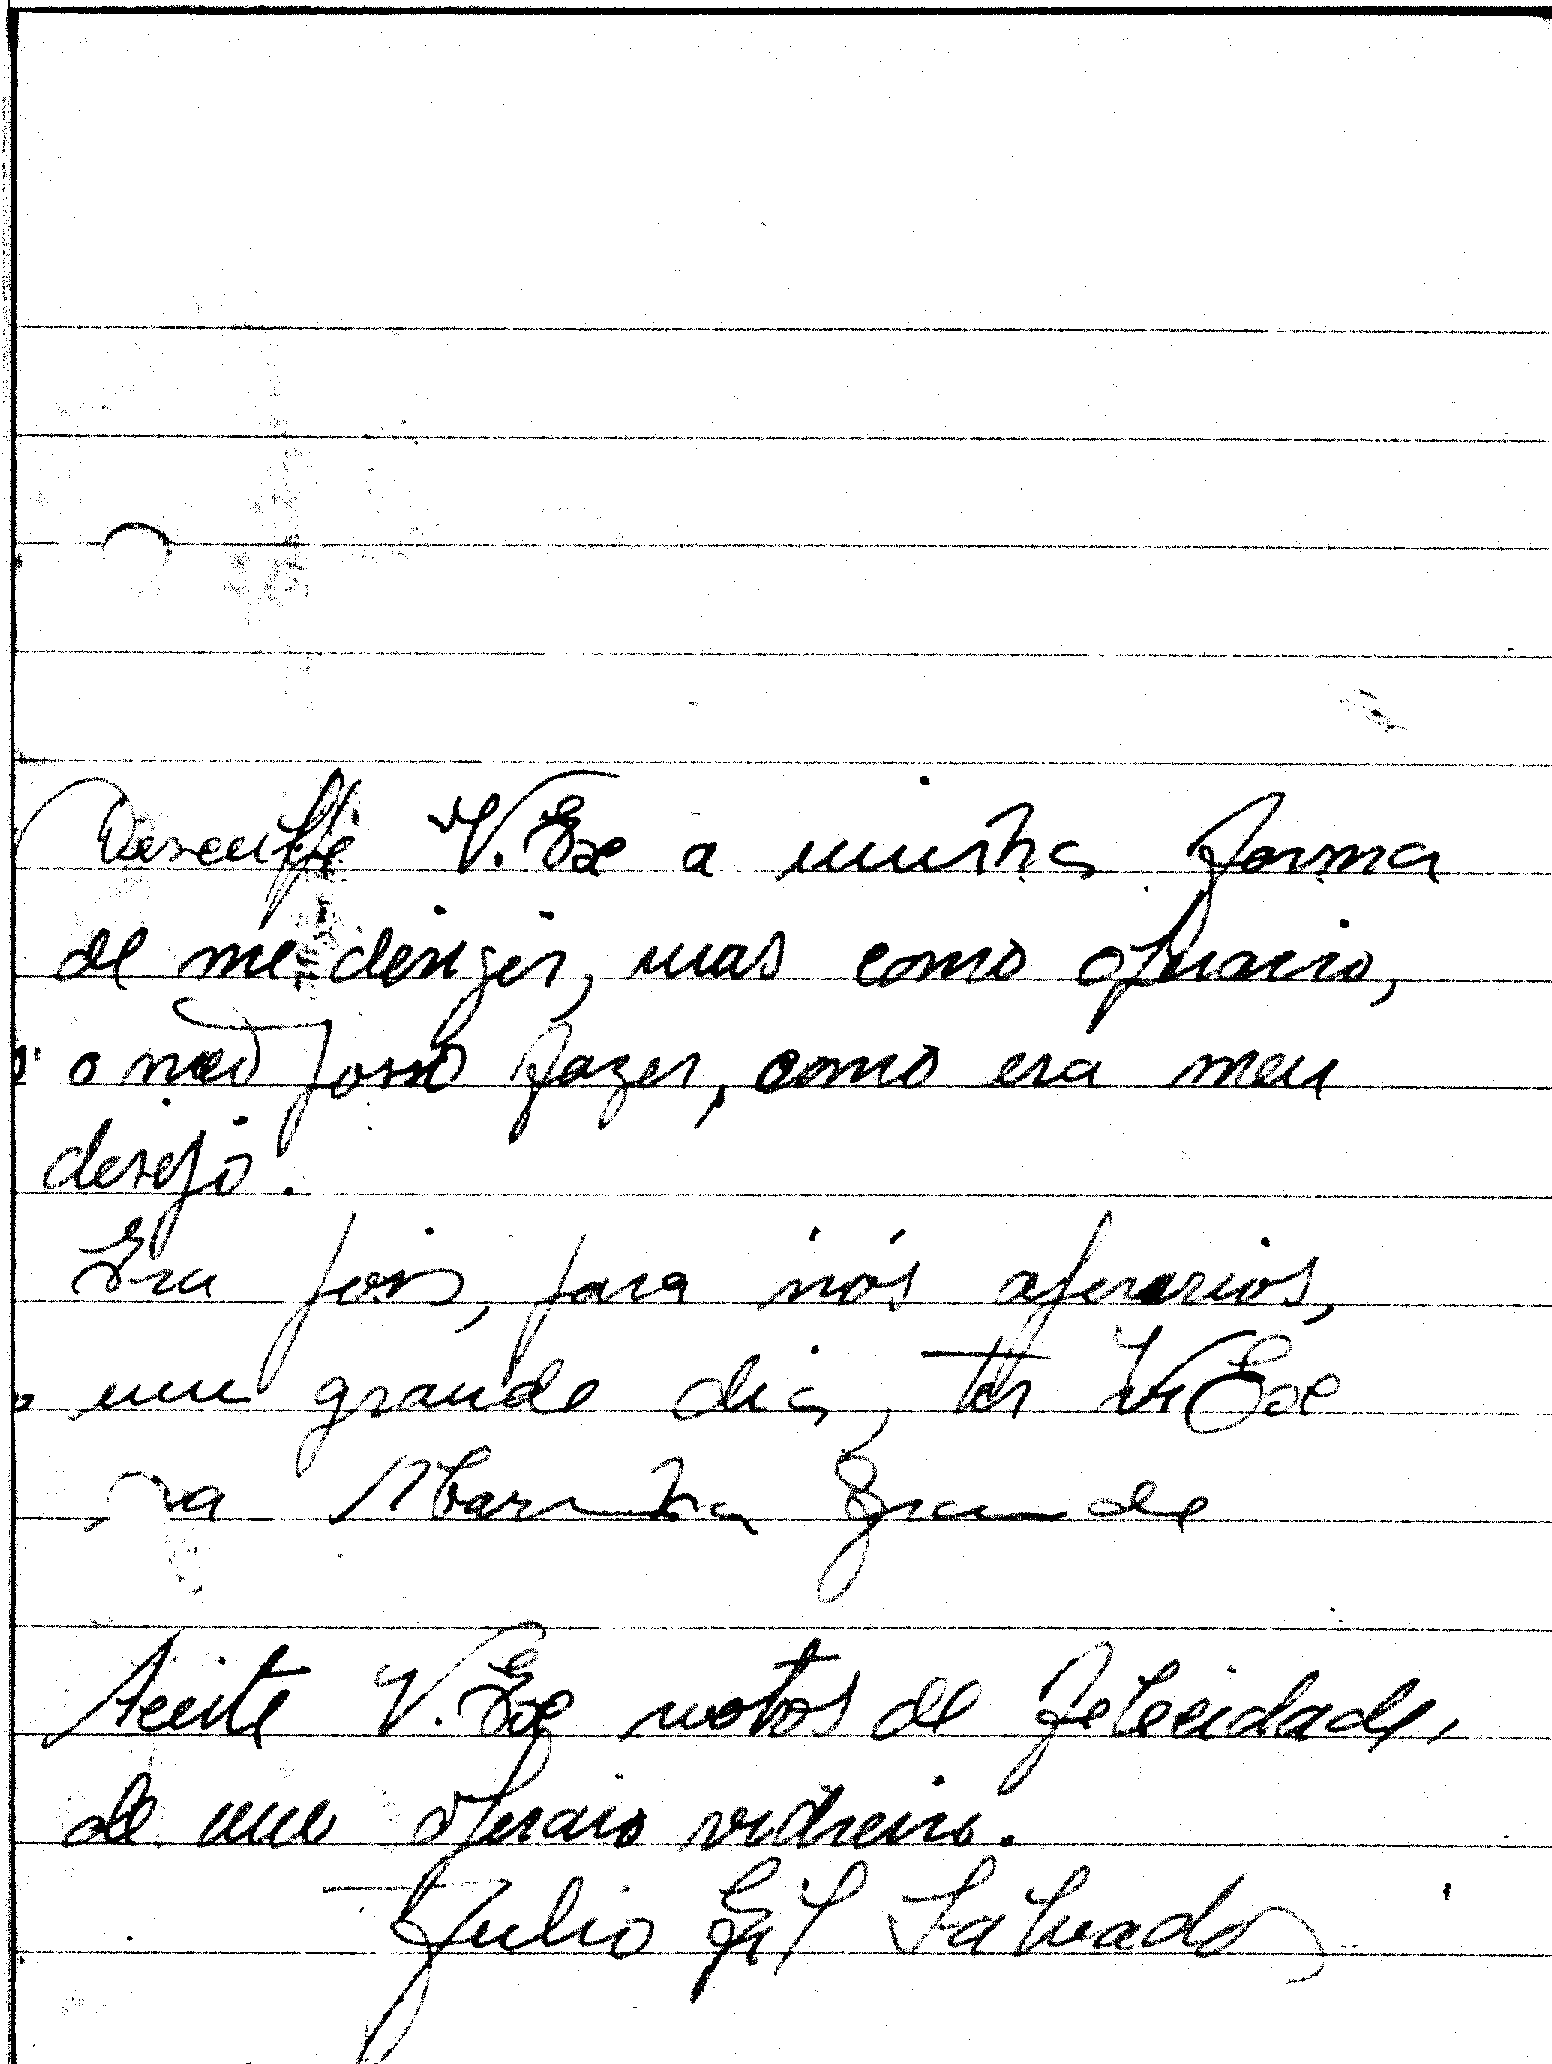 Desculpe V. Exe a minha forma
de me dirigir, mas como operario,
o não posso fazer, como era meu
desejo.
Era pois, para nós operarios,
um grande dia, ter V. Exe
na Marinha Grande
Aceite V. Exe votos de felecidade,
de um operario vidreiro.
Julio Gil Salvador